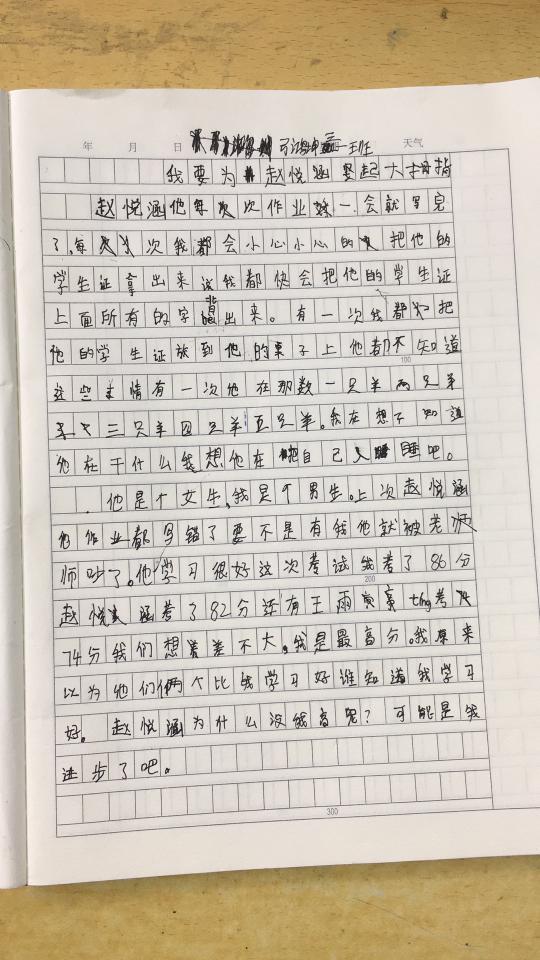 年 月 日 弓鸿坤 一班 天气
我要为赵悦涵竖起大拇指
赵悦涵他每次次作业一会就写完
了,每次我都会小心小心的把他的
学生证拿出来我都快会把他的学生证
上面所有的字背出来。有一次我都把
他的学生证放到他的桌子上他都不知道
这些事情有一次他在那数一只羊两只羊
三只羊四只羊五只羊。我在想不知道
他在干什么我想他在把自己睡吧。
他是个女生,我是个男生。上次赵悦涵
他作业都写错了要不是有我他就被老师
师吵了。他学习很好这次考试我考了86分
100
200
赵悦涵考了82分还有王雨ting考
74分我们想差差不大,我是最高分。我原来
以为他们俩个比我学习好谁知道我学习
好。赵悦涵为什么没我高呢?可能是我
进步了吧。
300